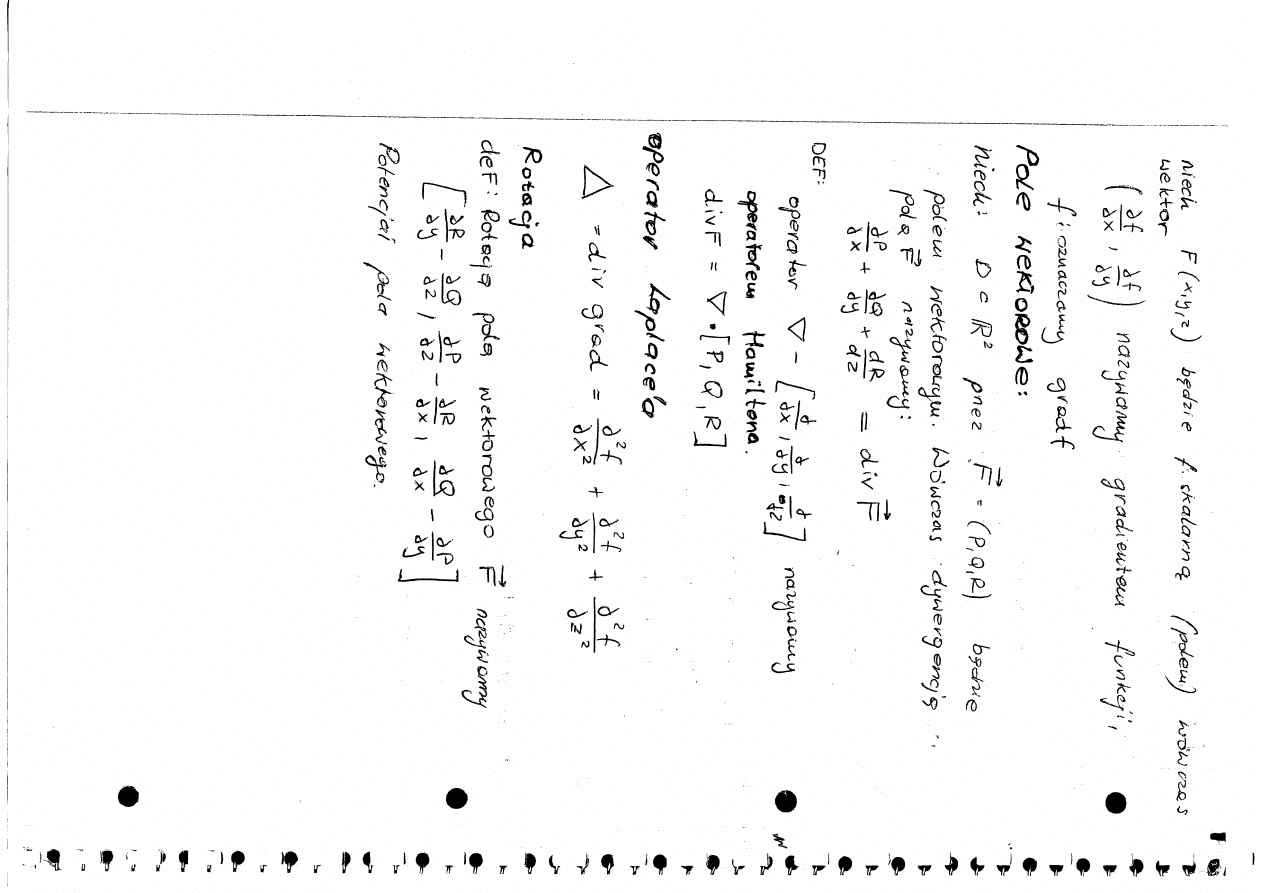 niech F(x,y,z) będzie f. skalarną (polem) wówczas
wektor
(∂f/∂x, ∂f/∂y) nazywamy gradientem funkcji,
f i oznaczamy gradf
POLE WEKTOROWE:
niech: D ⊂ ℝ² przez F⃗ = (P,Q,R) będzie
polem wektorowym. Wówczas dywergencją
pola F⃗ nazywamy:
∂P/∂x + ∂Q/∂y + ∂R/∂z = div F⃗
DEF:
operator ∇ - [∂/∂x, ∂/∂y, ∂/∂z] nazywamy
operatorem Hamiltona.
divF = ∇ · [P, Q, R]
operator Laplace'a
△ = div grad = ∂²f/∂x² + ∂²f/∂y² + ∂²f/∂z²
Rotacja
deF: Rotacją pola wektorowego F⃗ nazywamy
[∂R/∂y - ∂Q/∂z, ∂P/∂z - ∂R/∂x, ∂Q/∂x - ∂P/∂y]
Potencjał pola wektorowego.